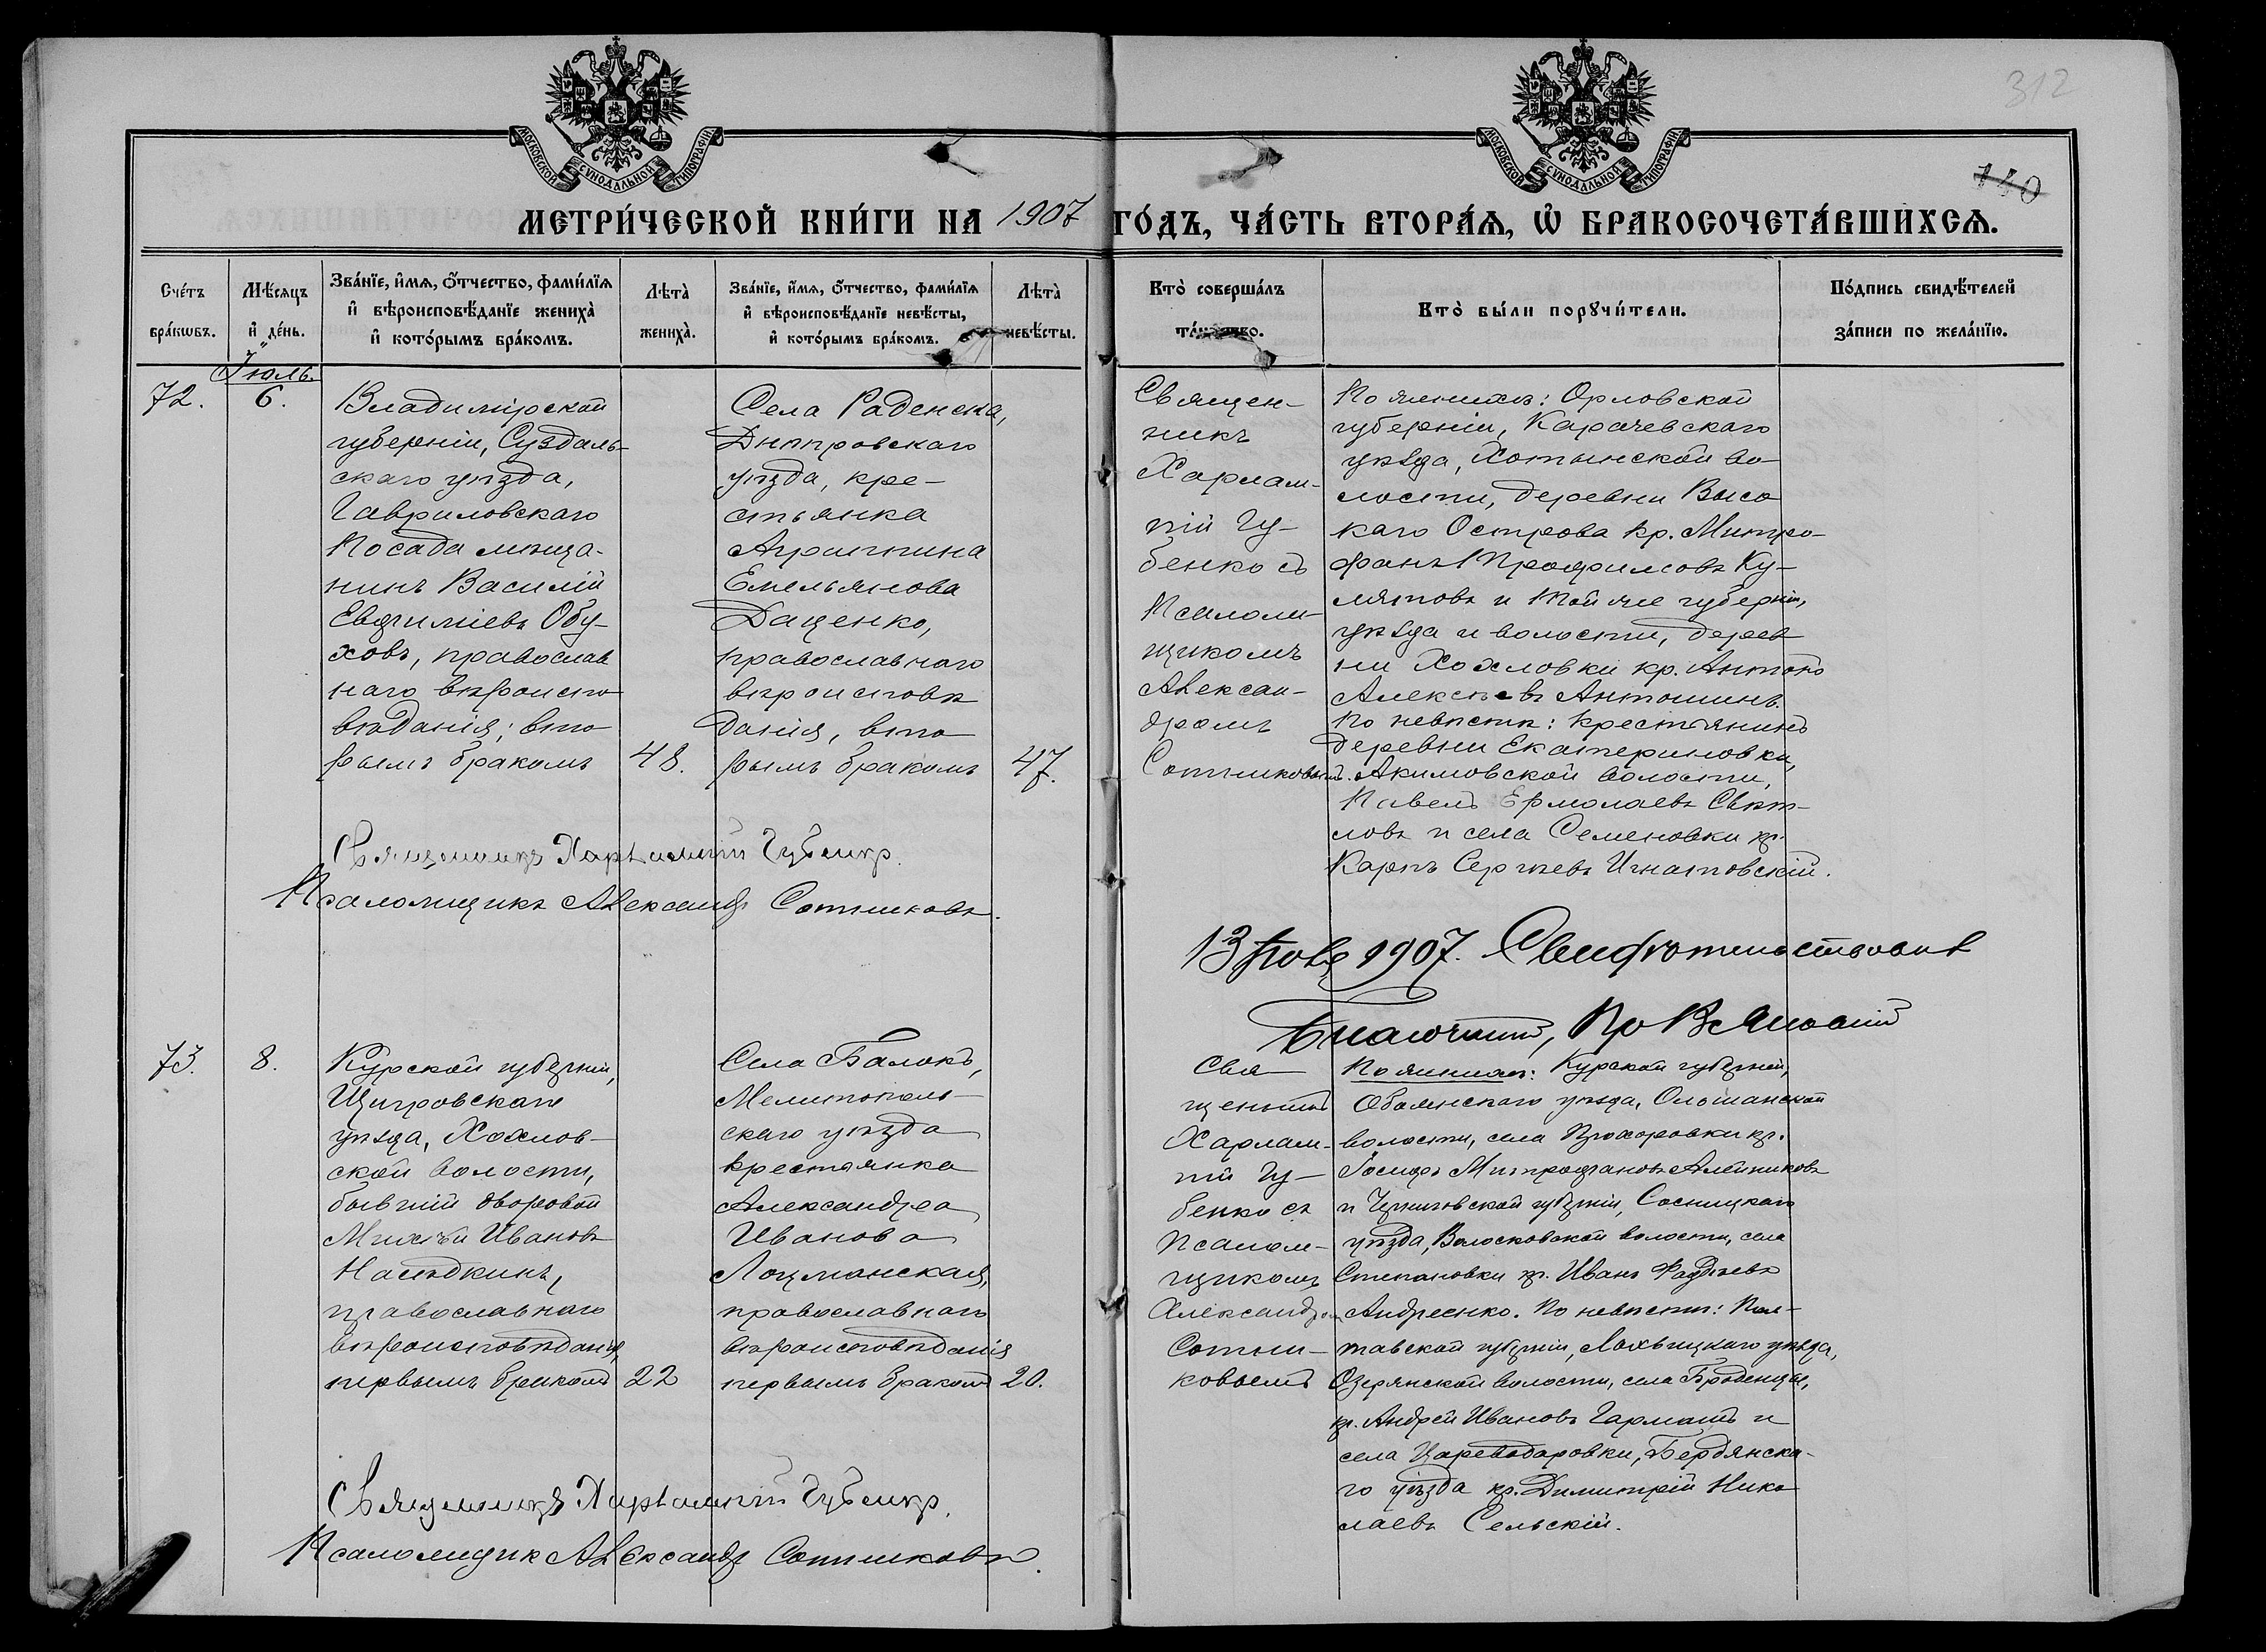 312
140
МОСКОВСКОЙ СѴНОДАЛЬНОЙ ТИПОГРАФІИ
МОСКОВСКОЙ СѴНОДАЛЬНОЙ ТИПОГРАФІИ
МЕТРИ́ЧЕСКОЙ КНИ́ГИ НА 1907 ГО́ДЪ, ЧА́СТЬ ВТОРА́Ѧ, Ѽ БРАКОСОЧЕТА́ВШИХСѦ.
Сче́тъ
бра́кѡвъ.
Мѣ́сѧцъ
и҆ де́нь.
Зва́нїе, и҆́мѧ, ѻ҆́тчество, фами́лїѧ
и҆ вѣроисповѣ́данїе жениха̀
и҆ кото́рымъ бра́комъ.
Лѣ́та̀
жениха̀.
Зва́нїе, и҆́мѧ, ѻ҆́тчество, фами́лїѧ
и҆ вѣроисповѣ́данїе невѣ́сты,
и҆ кото́рымъ бра́комъ.
Лѣ́та̀
невѣ́сты.
Кто̀ соверша́лъ
та́инство.
Кто̀ бы́ли порꙋчи́тели.
По́дпись свидѣ́телей
за́писи по жела́нїю.
Іюль.
72.
6.
Владимірской
губерніи, Суздаль-
скаго уѣзда,
Гавриловскаго
Посада мѣща-
нинъ Василій
Евфиміевъ Обу-
ховъ, православ
наго вѣроиспо
вѣданія; вто
рымъ бракомъ
48.
Села Раденска,
Днѣпровскаго
уѣзда, кре-
стьянка
Агриппина
Емельянова
Даценко,
православнаго
вѣроисповѣ
данія, вто
рымъ бракомъ
47.
Священ-
никъ
Харлам-
пій Гу-
бенко съ
Псалом-
щикомъ
Алексан-
дромъ
Сотниковымъ.
По женихѣ: Орловской
губерніи, Карачевскаго
уѣзда, Хотынской во-
лости, деревни Высо
каго Острова кр. Митро-
фанъ Трофимовъ Ку-
лятовъ и той же губерніи,
уѣзда и волости, дерев
ни Хохловки кр. Антонъ
Алексѣевъ Антошинъ.
По невѣстѣ: крестьянинъ
деревни Екатериновки,
Акимовской волости,
Павелъ Ермолаевъ Свѣт-
ловъ и села Семеновки кр.
Карпъ Сергѣевъ Игнатовскій.
Священникъ Харлампій Губенко.
Псаломщикъ Александръ Сотниковъ.
13 1907. Свидѣтельствовалъ
Благочинный,
73.
8.
Курской губерніи,
Щигровскаго
уѣзда, Хохлов-
ской волости,
бывшій дворовой
Михаи́лъ Ивановъ
Насѣдкинъ,
православнаго
вѣроисповѣданія,
первымъ бракомъ
22
Села Балокъ,
Мелитополь-
скаго уѣзда
крестьянка
Александра
Иванова
Лоцманская,
православнаго
вѣроисповѣданія
первымъ бракомъ
20.
Свя-
щенникъ
Харлам-
пій Гу-
бенко съ
Псалом-
щикомъ
Александромъ
Сотни-
ковымъ
По женихѣ: Курской губерніи,
Обоянскаго уѣзда, Ольшанской
волости, села Прохоровки кр.
Іосифъ Митрофановъ Алейниковъ
и Черниговской губерніи, Сосницкаго
уѣзда, Волосковской волости, села
Степановки кр. Иванъ Фаддѣевъ
Андреенко. По невѣстѣ: Пол-
тавской губерніи, Лохвицкаго уѣзда,
Озерянской волости, села Бродницы,
кр. Андрей Ивановъ Гарматъ и
села Цареводаровки, Бердянска-
го уѣзда кр. Димитрій Нико
лаевъ Сельскій.
Священникъ Харлампій Губенко.
Псаломщикъ Александръ Сотниковъ.